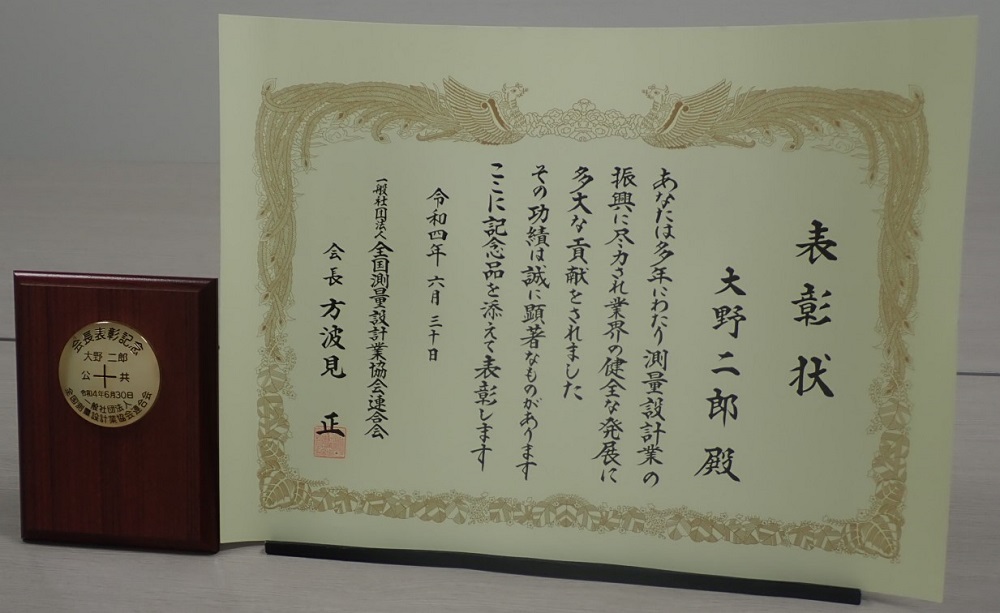 表彰状
大野二郎 殿
あなたは多年にわたり測量設計業の
振興に尽力され業界の健全な発展に
多大な貢献をされました
その功績は誠に顕著なものがあります
ここに記念品を添えて表彰します
令和四年 六月 三十日
一般社団法人全国測量設計業協会連合会
会長 方波見 正
会長表彰記念
大野 二郎
公 共
令和4年6月30日
一般社団法人
全国測量設計業協会連合会